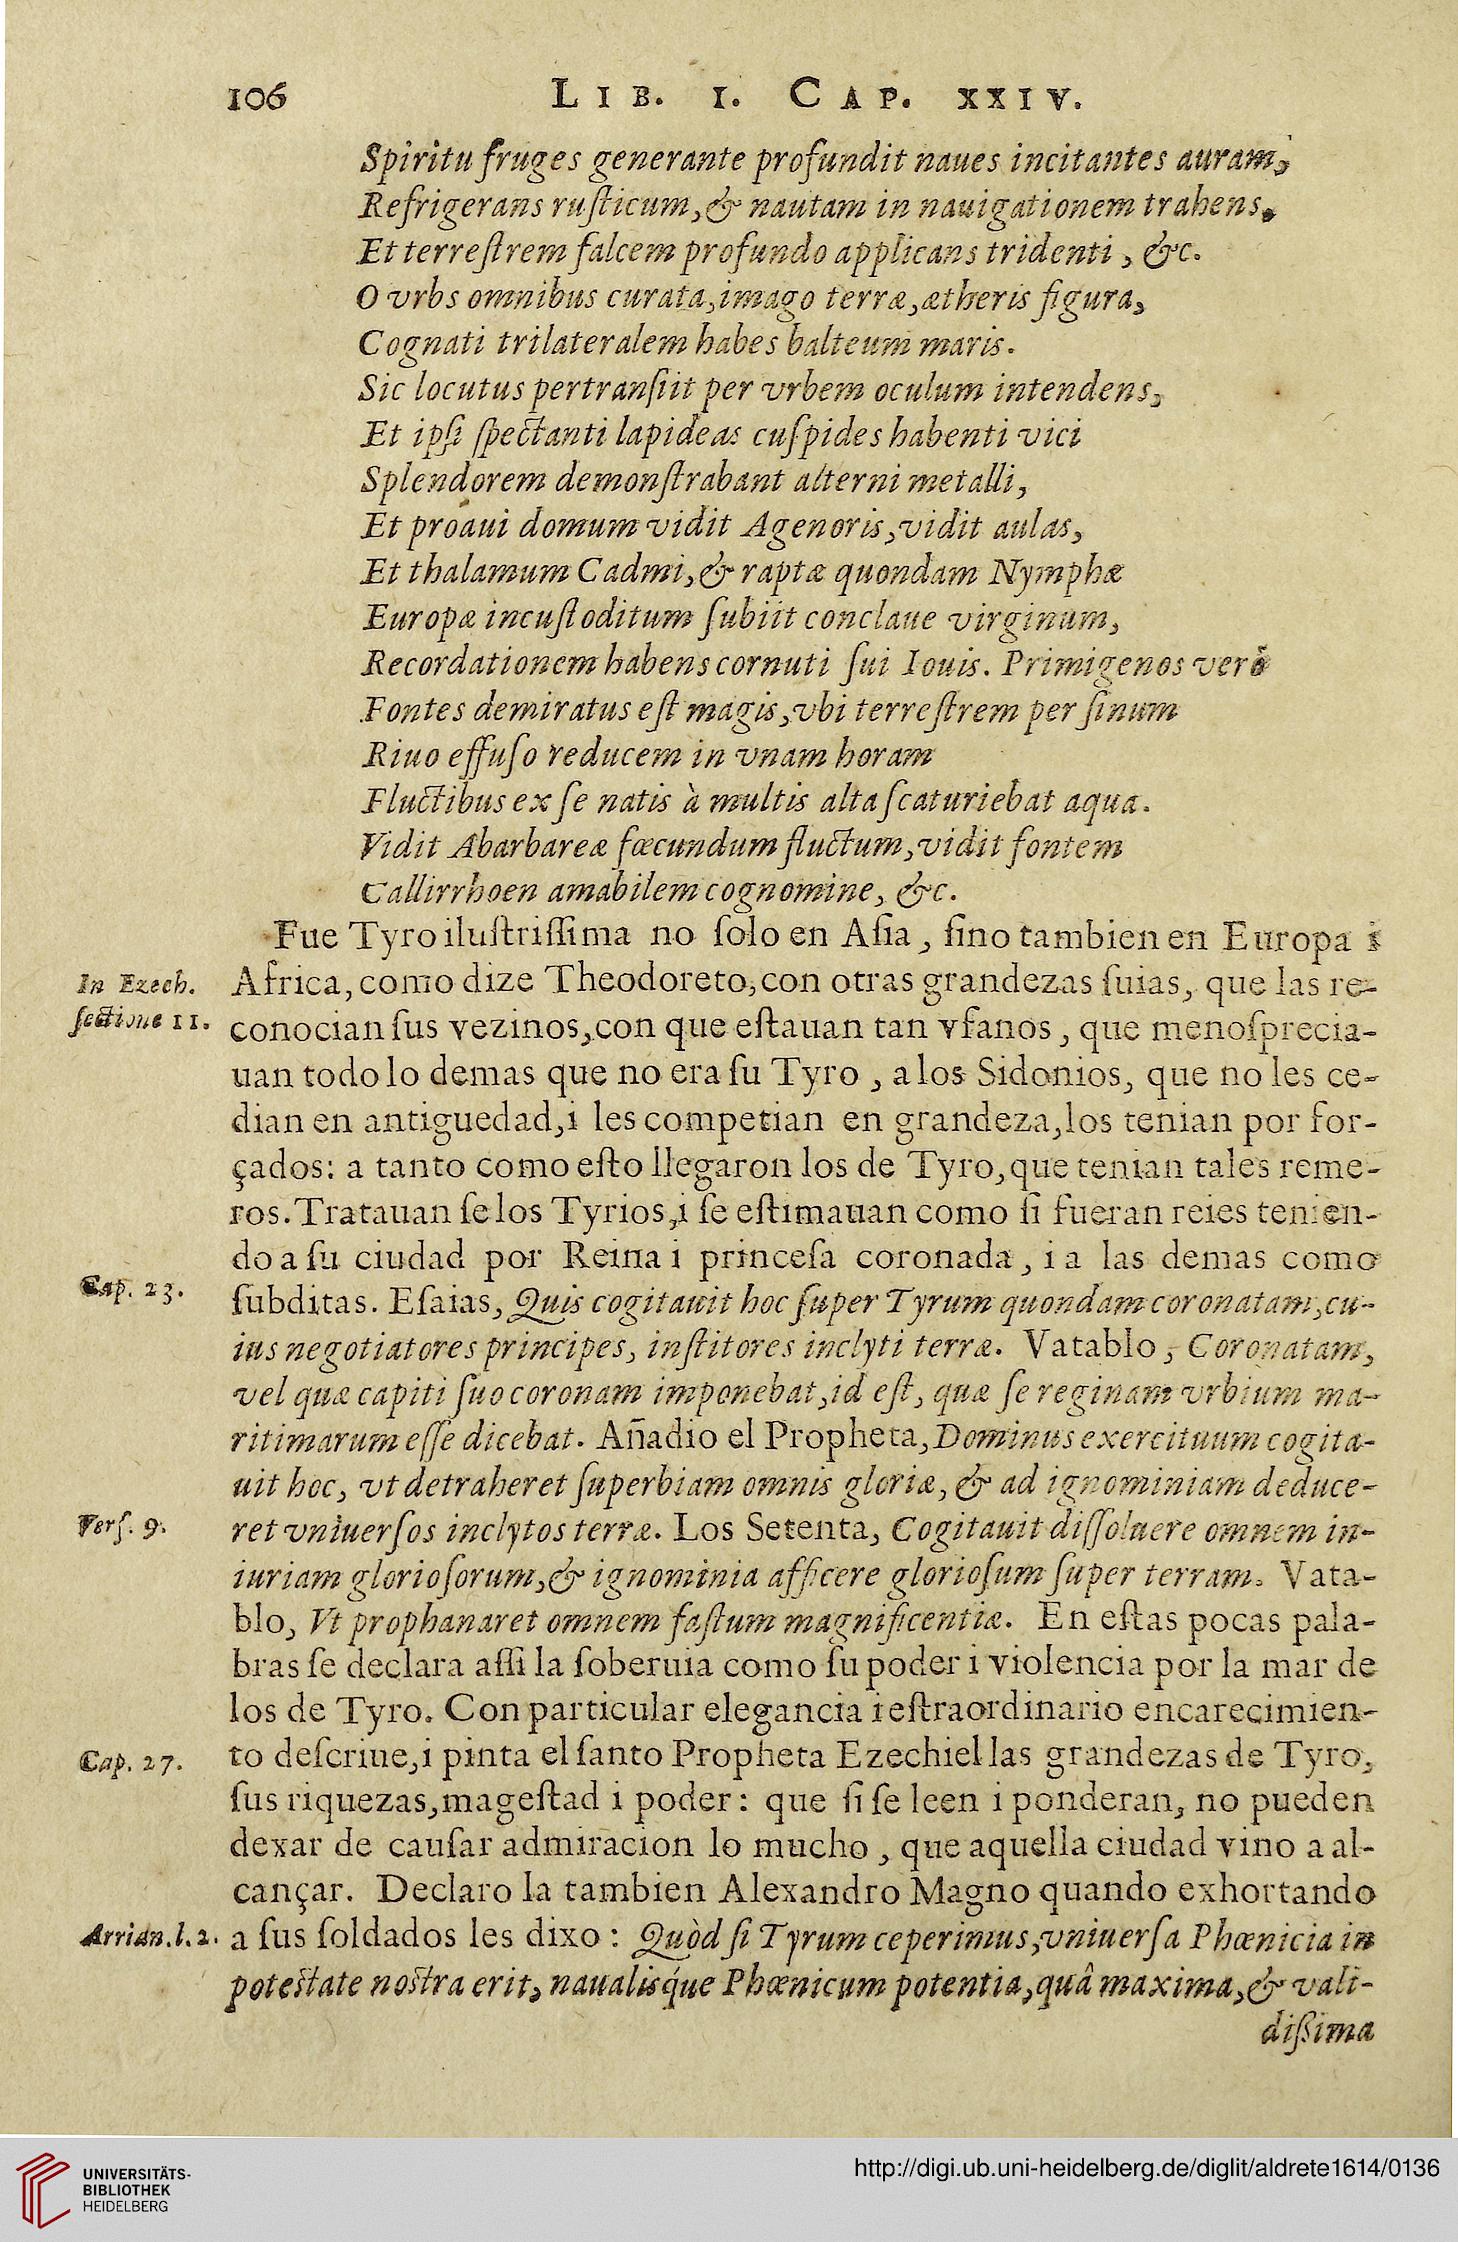 106 LIB. I. CAP. XXIV.
Spiritu fruges generante profundit naues incitantes auram,
Refrigerans ruſticum,& nautam in nauigationem trahens.
Et terreſtrem falcem profundo applicans tridenti , &c.
O vrbs omnibus curata,imago terræ,ætheris figura,
Cognati trilateralem habes balteum maris.
Sic locutus pertranſiit per vrbem oculum intendens,
Et ipſi ſpectanti lapideas cuſpides habenti vici
Splendorem demonſtrabant alterni metalli,
Et proaui domum vidit Agenoris,vidit aulas,
Et thalamum Cadmi,& raptæ quondam Nymphæ
Europæ incuſtoditum ſubiit conclaue virginum,
Recordationem habens cornuti ſui Iouis. Primigenos verò
Fontes demiratus eſt magis,vbi terreſtrem per ſinum
Riuo effuſo reducem in vnam horam
Fluctibus ex ſe natis à multis alta ſcaturiebat aqua.
Vidit Abarbareæ fœcundum fluctum,vidit fontem
Callirrhoen amabilem cognomine, &c.
Fue Tyro iluſtriſſima no ſolo en Aſia , ſino tambien en Europa i
In Ezech. Africa, como dize Theodoreto,con otras grandezas ſuias, que las re-
ſectione 11. conocian ſus vezinos,con que eſtauan tan vfanos , que menoſprecia-
uan todo lo demas que no era ſu Tyro , a los Sidonios, que no les ce-
dian en antiguedad,i les competian en grandeza,los tenian por for-
çados: a tanto como eſto llegaron los de Tyro,que tenian tales reme-
ros.Tratauan ſe los Tyrios,i ſe eſtimauan como ſi fueran reies tenien-
do a ſu ciudad por Reina i princeſa coronada , i a las demas como
Cap. 23. ſubditas. Eſaias, Quis cogitauit hoc ſuper Tyrum quondam coronatam,cu-
ius negotiatores principes, inſtitores inclyti terræ. Vatablo , Coronatam,
vel quæ capiti ſuo coronam imponebat,id eſt, quæ ſe reginam vrbium ma-
ritimarum eſſe dicebat. Añadio el Propheta,Dominus exercituum cogita-
uit hoc, vt detraheret ſuperbiam omnis gloriæ, & ad ignominiam deduce-
Verſ. 9. ret vniuerſos inclytos terræ. Los Setenta, Cogitauit diſſoluere omnem in-
iuriam glorioſorum,& ignominia afficere glorioſum ſuper terram. Vata-
blo, Vt prophanaret omnem faſtum magnificentiæ. En eſtas pocas pala-
bras ſe declara aſſi la ſoberuia como ſu poder i violencia por la mar de
los de Tyro. Con particular elegancia i eſtraordinario encarecimien-
Cap. 27. to deſcriue,i pinta el ſanto Propheta Ezechiel las grandezas de Tyro,
ſus riquezas,mageſtad i poder: que ſi ſe leen i ponderan, no pueden
dexar de cauſar admiracion lo mucho , que aquella ciudad vino a al-
cançar. Declaro la tambien Alexandro Magno quando exhortando
Arrian.l.2. a ſus ſoldados les dixo : Quòd ſi Tyrum ceperimus,vniuerſa Phœnicia in
poteſtate noſtra erit, naualiſq́ue Phœnicum potentia,quâ maxima,& vali-
diſſima
UNIVERSITÄTS-
BIBLIOTHEK
HEIDELBERG
http://digi.ub.uni-heidelberg.de/diglit/aldrete1614/0136